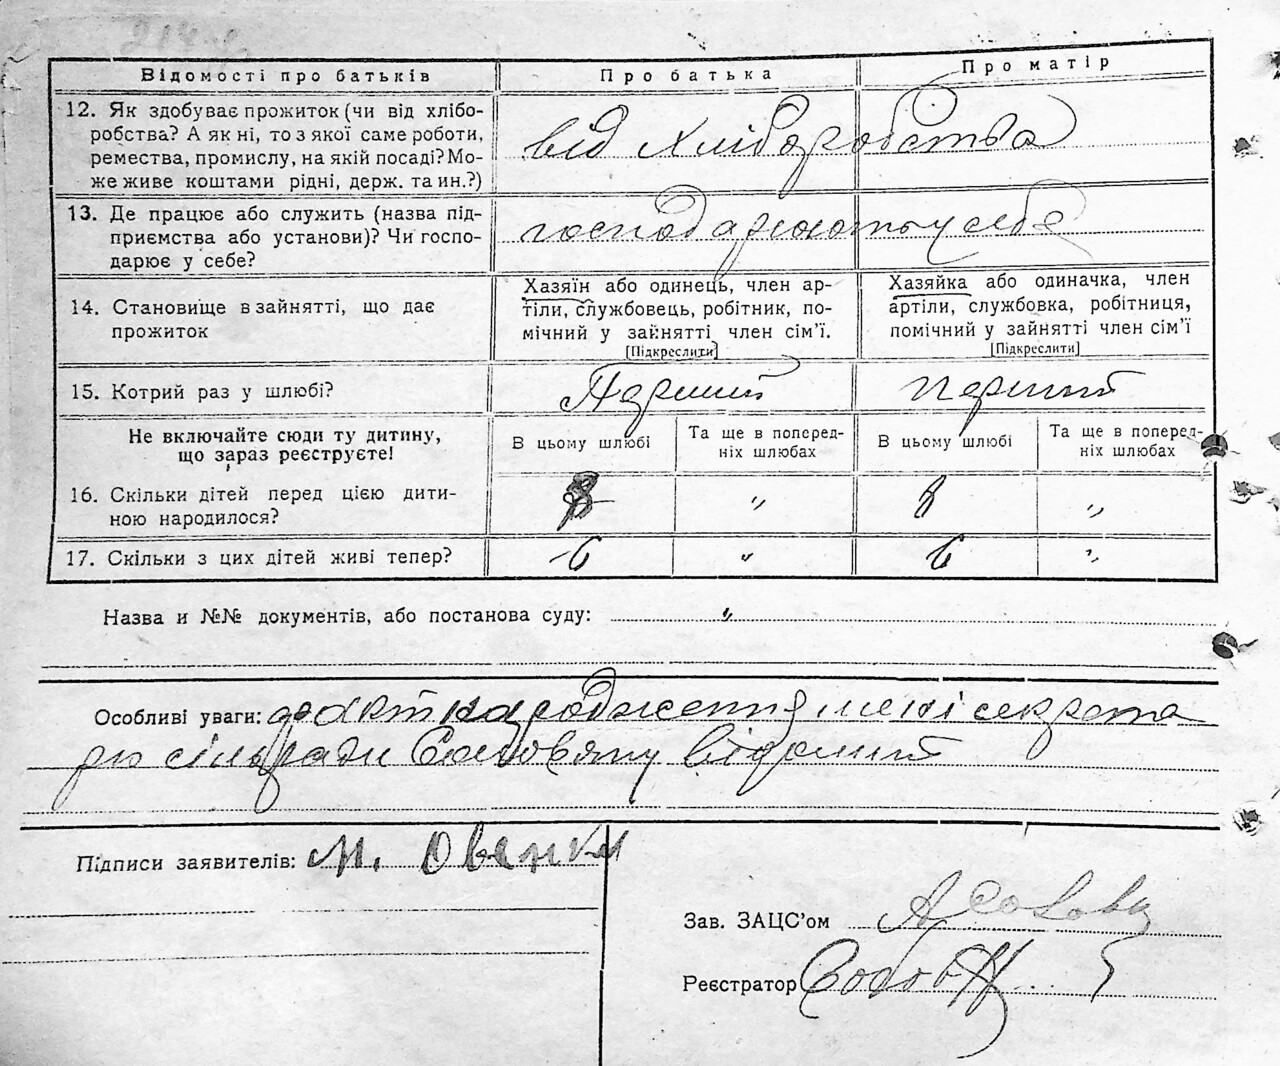 Відомості про батьків
Про батька
Про матір
12. Як здобуває прожиток (чи від хлібо-
робства? А як ні, то з якої саме роботи,
ремества, промислу, на якій посаді? Мо-
же живе коштами рідні, держ. та ин.?)
від хліборобства
13. Де працює або служить (назва під-
приємства або установи)? Чи госпо-
дарює у себе?
господарюють у себе
14. Становище в зайнятті, що дає
прожиток
Хазяїн або одинець, член ар-
тіли, службовець, робітник, по-
мічний у зайнятті член сім’ї.
[Підкреслити]
Хазяйка або одиначка, член
артіли, службовка, робітниця,
помічний у зайнятті член сім’ї
[Підкреслити]
15. Котрий раз у шлюбі?
Перший
перший
Не включайте сюди ту дитину,
що зараз реєструєте!
В цьому шлюбі
Та ще в поперед-
ніх шлюбах
В цьому шлюбі
Та ще в поперед-
ніх шлюбах
16. Скільки дітей перед цією дити-
ною народилося?
8 „ 8 „
17. Скільки з цих дітей живі тепер?
6 „ 6 „
Назва и №№ документів, або постанова суду: „
Особливі уваги: факт народження мені секрета
рю сільради відомий
Підписи заявителів: М.
Зав. ЗАЦС’ом
Реєстратор